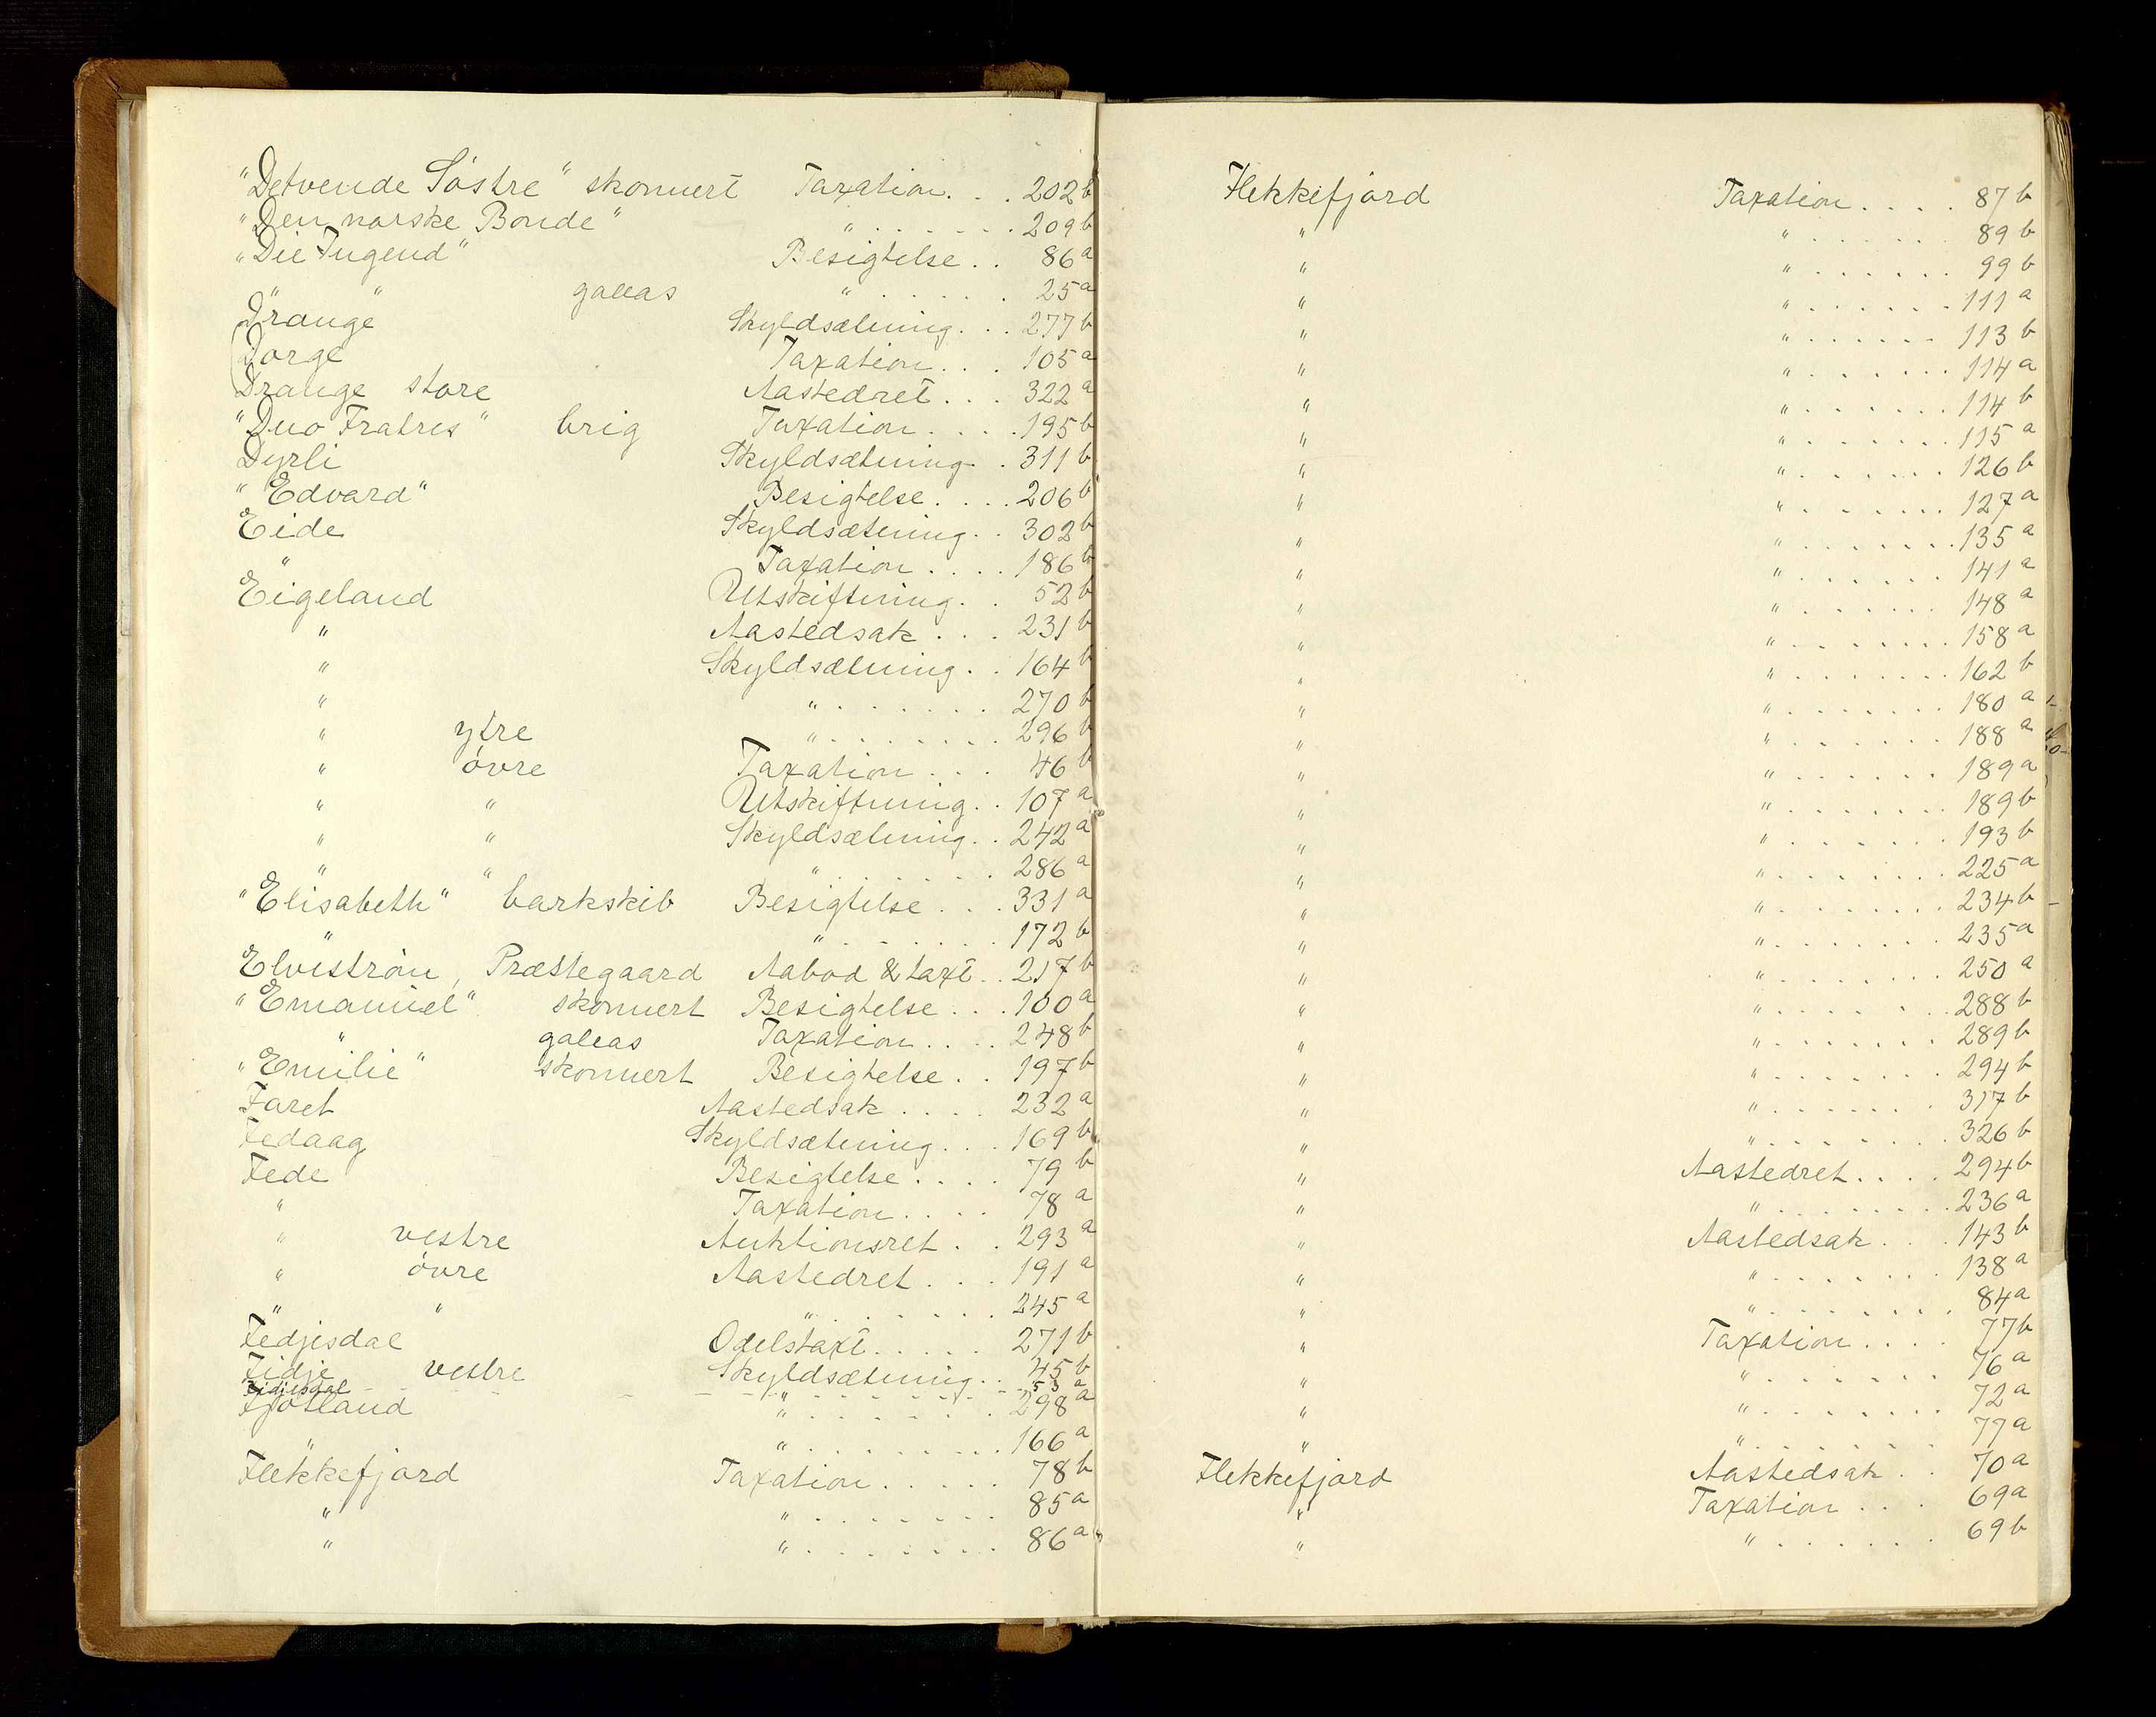 "Detvende Søstre" skonnert Taxation. . . 202b
"Den norske Bonde" " . . . . . . . 209b
"Die Jugend" Besigtelse . . 86a
" " galeas " . . . . . . 25a
Drange Skyldsætning. . . 277b
Dorge Taxation. . . 105a
Drange store Aastedret . . . 322a
"Duo Fratres" brig Taxation . . . . 195b
Dyrli Skyldsætning . . 311b
"Edvard" Besigtelse . . . . 206b
Eide Skyldsætning . . 302b
" Taxation . . . . 186b
Eigeland Utskiftning . . 52b
" Aastedsak . . . 231b
" Skyldsætning . . 164b
" " . . . . . . . 270b
" ytre " . . . . . . . . 296b
" øvre Taxation . . . 46b
" " Utskiftning. . 107a
" " Skyldsætning. . 242a
" " " . . . . . . . 286a
"Elisabeth" barkskib Besigtelse . . . 331a
" " . . . . . . . 172b
Elvestrøn, Præstegaard Aabod & taxt. . 217b
"Emanuel" skonnert Besigtelse . . . 100a
" galeas Taxation . . . . 248b
"Emilie" skonnert Besigtelse . . 197b
Faret Aastedsak . . . . 232a
Fedaag Skyldsætning. . . 169b
Fede Besigtelse . . . . 79b
" Taxation . . . . 78a
" vestre Auktionsret . . 293a
" øvre Aastedret . . . 191a
" " " . . . . . . . 245a
Fedjesdal Odelstaxt . . . . . 271b
Fidje vestre Skyldsætning. . 45b
Fidjesdal - - - - - - - - - 53a
Fjotland " . . . . . . . 298a
" " . . . . . . . . . 166a
Flekkefjord Taxation . . . . . 78b
" " . . . . . . . . 85a
" " . . . . . . . . 86a
Flekkefjord Taxation . . . . 87b
" " . . . . . . . 89b
" " . . . . . . . 99b
" " . . . . . . . 111a
" " . . . . . . . 113b
" " . . . . . . . 114a
" " . . . . . . . 114b
" " . . . . . . . 115a
" " . . . . . . . 126b
" " . . . . . . . 127a
" " . . . . . . . 135a
" " . . . . . . . 141a
" " . . . . . . . 148a
" " . . . . . . . 158a
" " . . . . . . . 162b
" " . . . . . . . 180a
" " . . . . . . . 188a
" " . . . . . . . 189a
" " . . . . . . . 189b
" " . . . . . . . 193b
" " . . . . . . . 225a
" " . . . . . . . 234b
" " . . . . . . . 235a
" " . . . . . . . 250a
" " . . . . . . . 288b
" " . . . . . . . 289b
" " . . . . . . . 294b
" " . . . . . . . 317b
" " . . . . . . . 326b
" Aastedret . . . . 294b
" " . . . . . . . . 236a
" Aastedsak . . . 143b
" " . . . . . . . . 138a
" " . . . . . . . . 84a
" Taxation . . . . 77b
" " . . . . . . . . 76a
" " . . . . . . . . 72a
" " . . . . . . . . 77a
Flekkefjord Aastedsak . . 70a
" Taxation . . . 69a
" " . . . . . . . 69b